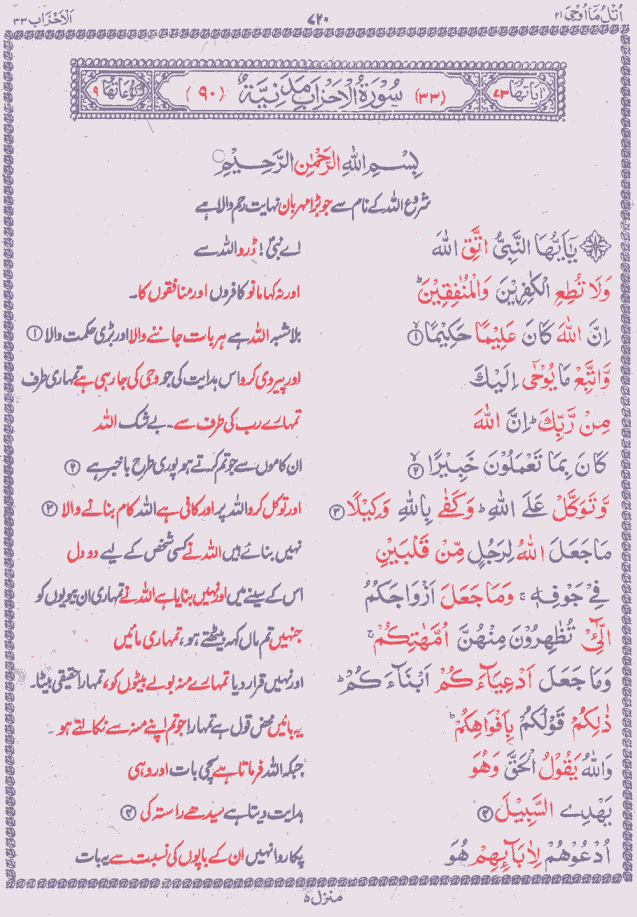 اُتْلُ مَا اُوْحِیَ ۲۱ ۷۲۰ اَلْاَحْزَاب ۳۳
اٰیَاتُهَا ۷۳ (۳۳) سُوْرَةُ الْاَحْزَابِ مَدَنِیَّةٌ (۹۰) رُکُوْعَاتُهَا ۹
بِسْمِ اللهِ الرَّحْمٰنِ الرَّحِیْمِ
شروع اللہ کے نام سے جو بڑا مہربان نہایت رحم والا ہے
یٰۤاَیُّهَا النَّبِیُّ اتَّقِ اللهَ اے نبیؐ! ڈرو اللہ سے
وَلَا تُطِعِ الْکٰفِرِیْنَ وَالْمُنٰفِقِیْنَ ؕ اور نہ کہا مانو کافروں اور منافقوں کا۔
اِنَّ اللهَ کَانَ عَلِیْمًا حَکِیْمًا ۱ بلاشبہ اللہ ہے ہر بات جاننے والا اور بڑی حکمت والا ۱
وَّاتَّبِعْ مَا یُوْحٰۤی اِلَیْکَ اور پیروی کرو اس ہدایت کی جو وحی کی جا رہی ہے تمہاری طرف
مِنْ رَّبِّکَ ؕ اِنَّ اللهَ تمہارے رب کی طرف سے۔ بے شک اللہ
کَانَ بِمَا تَعْمَلُوْنَ خَبِیْرًا ۲ ان کاموں سے جو تم کرتے ہو پوری طرح باخبر ہے ۲
وَّتَوَکَّلْ عَلَی اللهِ ؕ وَکَفٰی بِاللهِ وَکِیْلًا ۳ اور توکل کرو اللہ پر اور کافی ہے اللہ کام بنانے والا ۳
مَا جَعَلَ اللهُ لِرَجُلٍ مِّنْ قَلْبَیْنِ نہیں بنائے ہیں اللہ نے کسی شخص کے لیے دو دل
فِیْ جَوْفِهٖ ۚ وَمَا جَعَلَ اَزْوَاجَکُمُ اس کے سینے میں اور نہیں بنایا ہے اللہ نے تمہاری ان بیویوں کو
الّٰٓـِٔیْ تُظٰهِرُوْنَ مِنْهُنَّ اُمَّهٰتِکُمْ ۚ جنہیں تم ماں کہہ بیٹھتے ہو، تمہاری مائیں
وَمَا جَعَلَ اَدْعِیَآءَکُمْ اَبْنَآءَکُمْ ؕ اور نہیں قرار دیا تمہارے منہ بولے بیٹوں کو، تمہارا حقیقی بیٹا۔
ذٰلِکُمْ قَوْلُکُمْ بِاَفْوَاهِکُمْ ؕ یہ باتیں محض قول ہے تمہارا جو تم اپنے منہ سے نکالتے ہو۔
وَاللهُ یَقُوْلُ الْحَقَّ وَهُوَ جبکہ اللہ فرماتا ہے سچی بات اور وہی
یَهْدِی السَّبِیْلَ ۴ ہدایت دیتا ہے سیدھے راستہ کی ۴
اُدْعُوْهُمْ لِاٰبَآىِٕهِمْ هُوَ پکارو انہیں ان کے باپوں کی نسبت سے یہ بات
منزل ۵